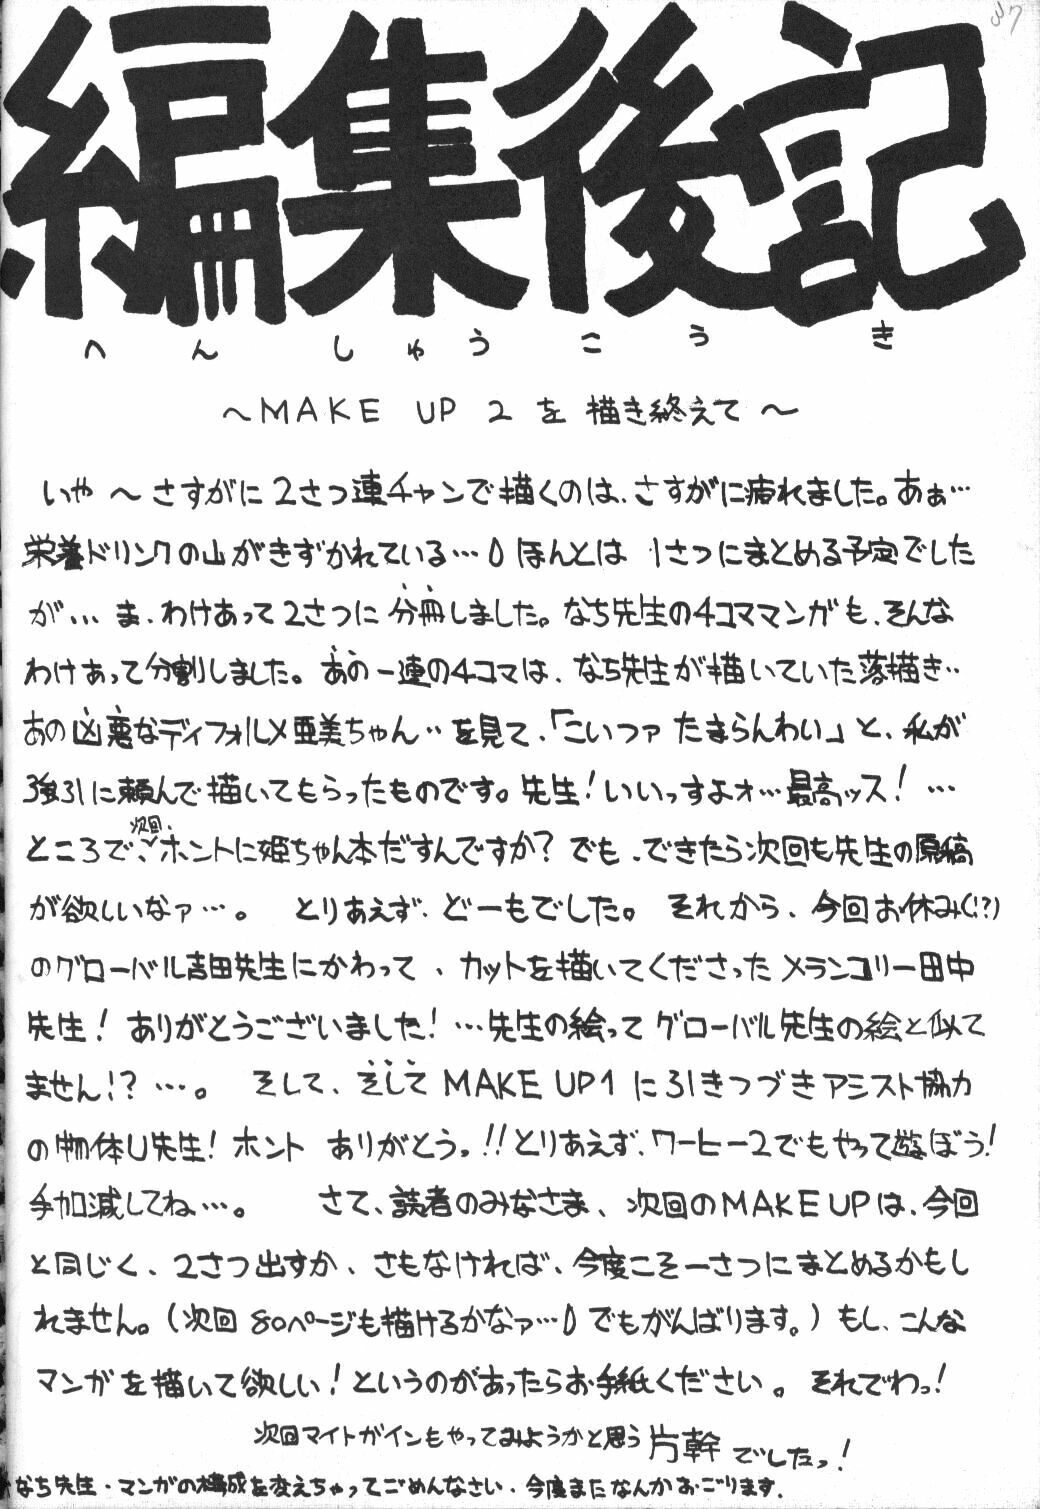 37
編集後記
へんしゅうこうき
～MAKE UP 2 を 描き終えて～
いや～さすがに2さつ連チャンで描くのは、さすがに疲れました。あぁ…
栄養ドリンクの山がきずかれている… ほんとは 1さつにまとめる予定でした
が… ま、わけあって2さつに分冊しました。なち先生の4コママンガも、そんな
わけあって分割しました。あの一連の4コマは、なち先生が描いていた落描き‥
あの凶悪なディフォルメ亜美ちゃん‥を見て、「こいつァ たまらんわい」と、私が
強引に頼んで描いてもらったものです。先生！いいっすよォ…最高ッス！…
ところで、次回、ホントに姫ちゃん本だすんですか？でも、できたら次回も先生の原稿
が欲しいなァ…。 とりあえず、どーもでした。 それから、今回お休み(!?)
のグローバル吉田先生にかわって、カットを描いてくださったメランコリー田中
先生！ありがとうございました！…先生の絵ってグローバル先生の絵と似て
ません!？…。 そして、そしてMAKE UP1に引きつづきアシスト協力
の物体U先生！ホント ありがとう。!!とりあえず、ワーヒー2でもやって遊ぼう！
手加減してね…。 さて、読者のみなさま、次回のMAKE UPは、今回
と同じく、2さつ出すか、さもなければ、今度こそ一さつにまとめるかもし
れません。(次回80ページも描けるかなァ… でもがんばります。)もし、こんな
マンガを描いて欲しい！というのがあったらお手紙ください。それでわっ！
次回マイトガインもやってみようかと思う 片幹 でしたっ！
なち先生・マンガの構成を変えちゃってごめんなさい、今度またなんかおごります。